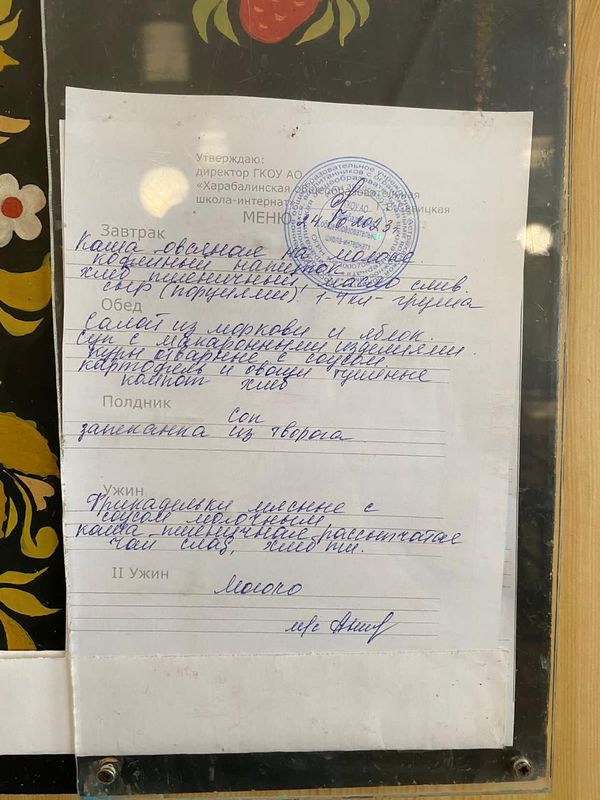 Утверждаю:
директор ГКОУ АО
«Харабалинская общеобразовательная
школа-интернат»
МЕНЮ
24. 2023г
Завтрак
Каша овсяная на молоке.
кофейный напиток
хлеб пшеничный, масло слив.
сыр (порциями), 1-4кл- груша
Обед
Салат из моркови и яблок.
Суп с макаронными изделиями.
Куры отварные с соусом.
картофель и овощи тушеные
компот хлеб
Полдник
Сок
запеканка из творога
Ужин
Фрикадельки мясные с
соусом молочным
каша пшеничная рассыпчатая
чай слад, хлеб пш.
II Ужин
Молоко
м/с